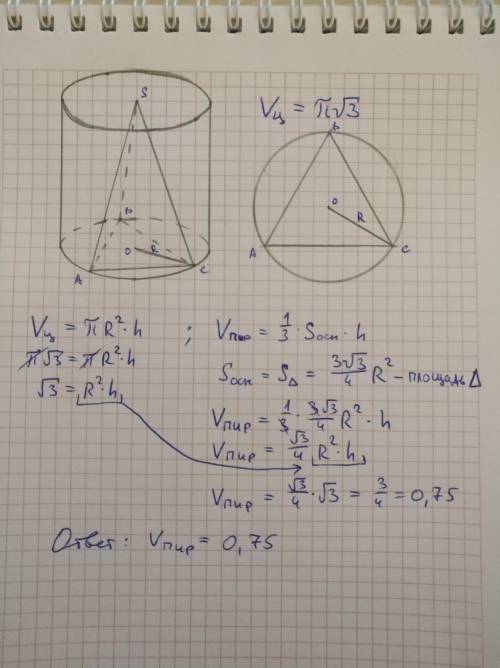 S
V_ц = π√3
B
O
R
A
C
B
O
R
A
C
V_ц = πR²·h ; V_пир = 1/3 · S_осн · h
π√3 = πR²·h
√3 = R²·h
S_осн = S_Δ = 3√3/4 R² – площадь Δ
V_пир = 1/3 · 3√3/4 R² · h
V_пир = √3/4 R²·h
V_пир = √3/4 · √3 = 3/4 = 0,75
Ответ: V_пир = 0,75